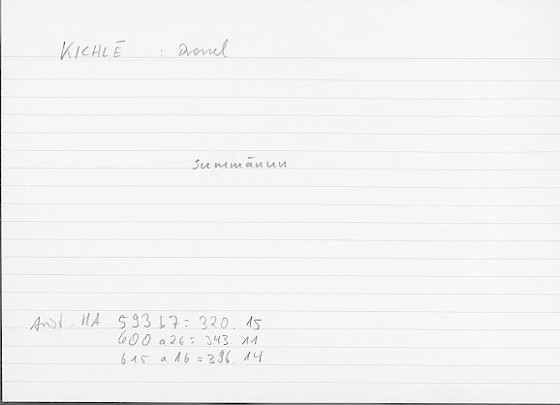 KICHLĒ : Drossel
Summānun
Arist. HA 593 b7 = 320.15
600 a26 = 343.11
615 a16 = 396.14